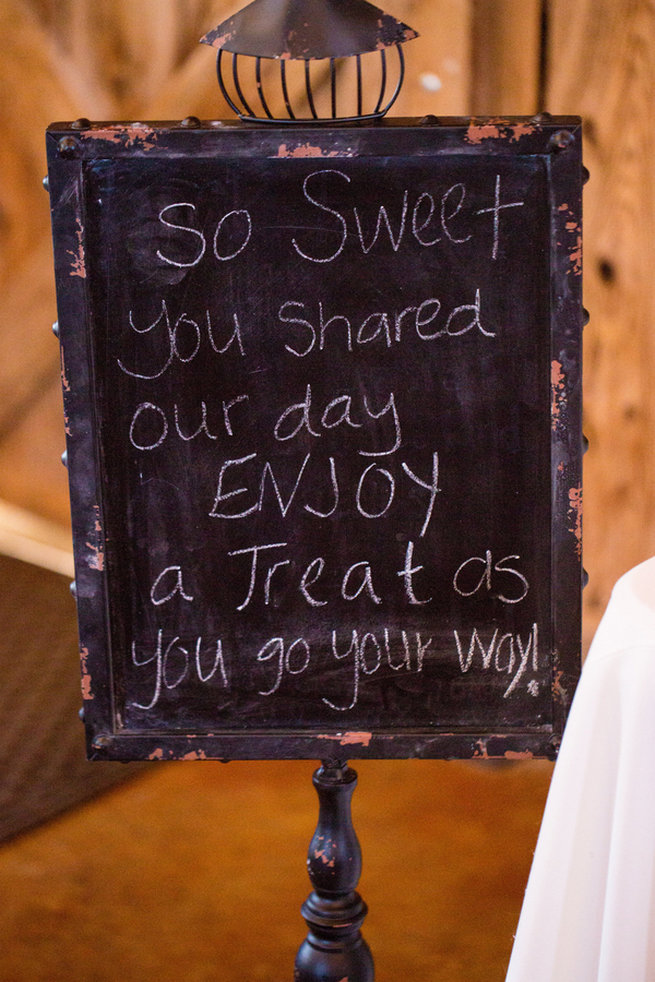 So Sweet
you shared
our day
ENJOY
a Treat as
you go your way!